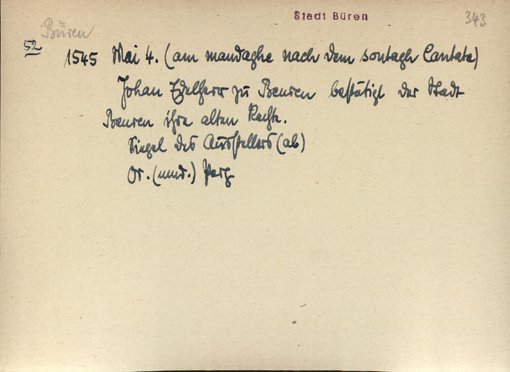 Büren
Stadt Büren
343
52
1545 Mai 4. (am mandaghe nach dem sontagh Cantate)
Johan Edelherr zu Beuren bestätigt der Stadt
Beuren ihre alten Rechte.
Siegel des Ausstellers (ab)
Or. (mnd.) Perg